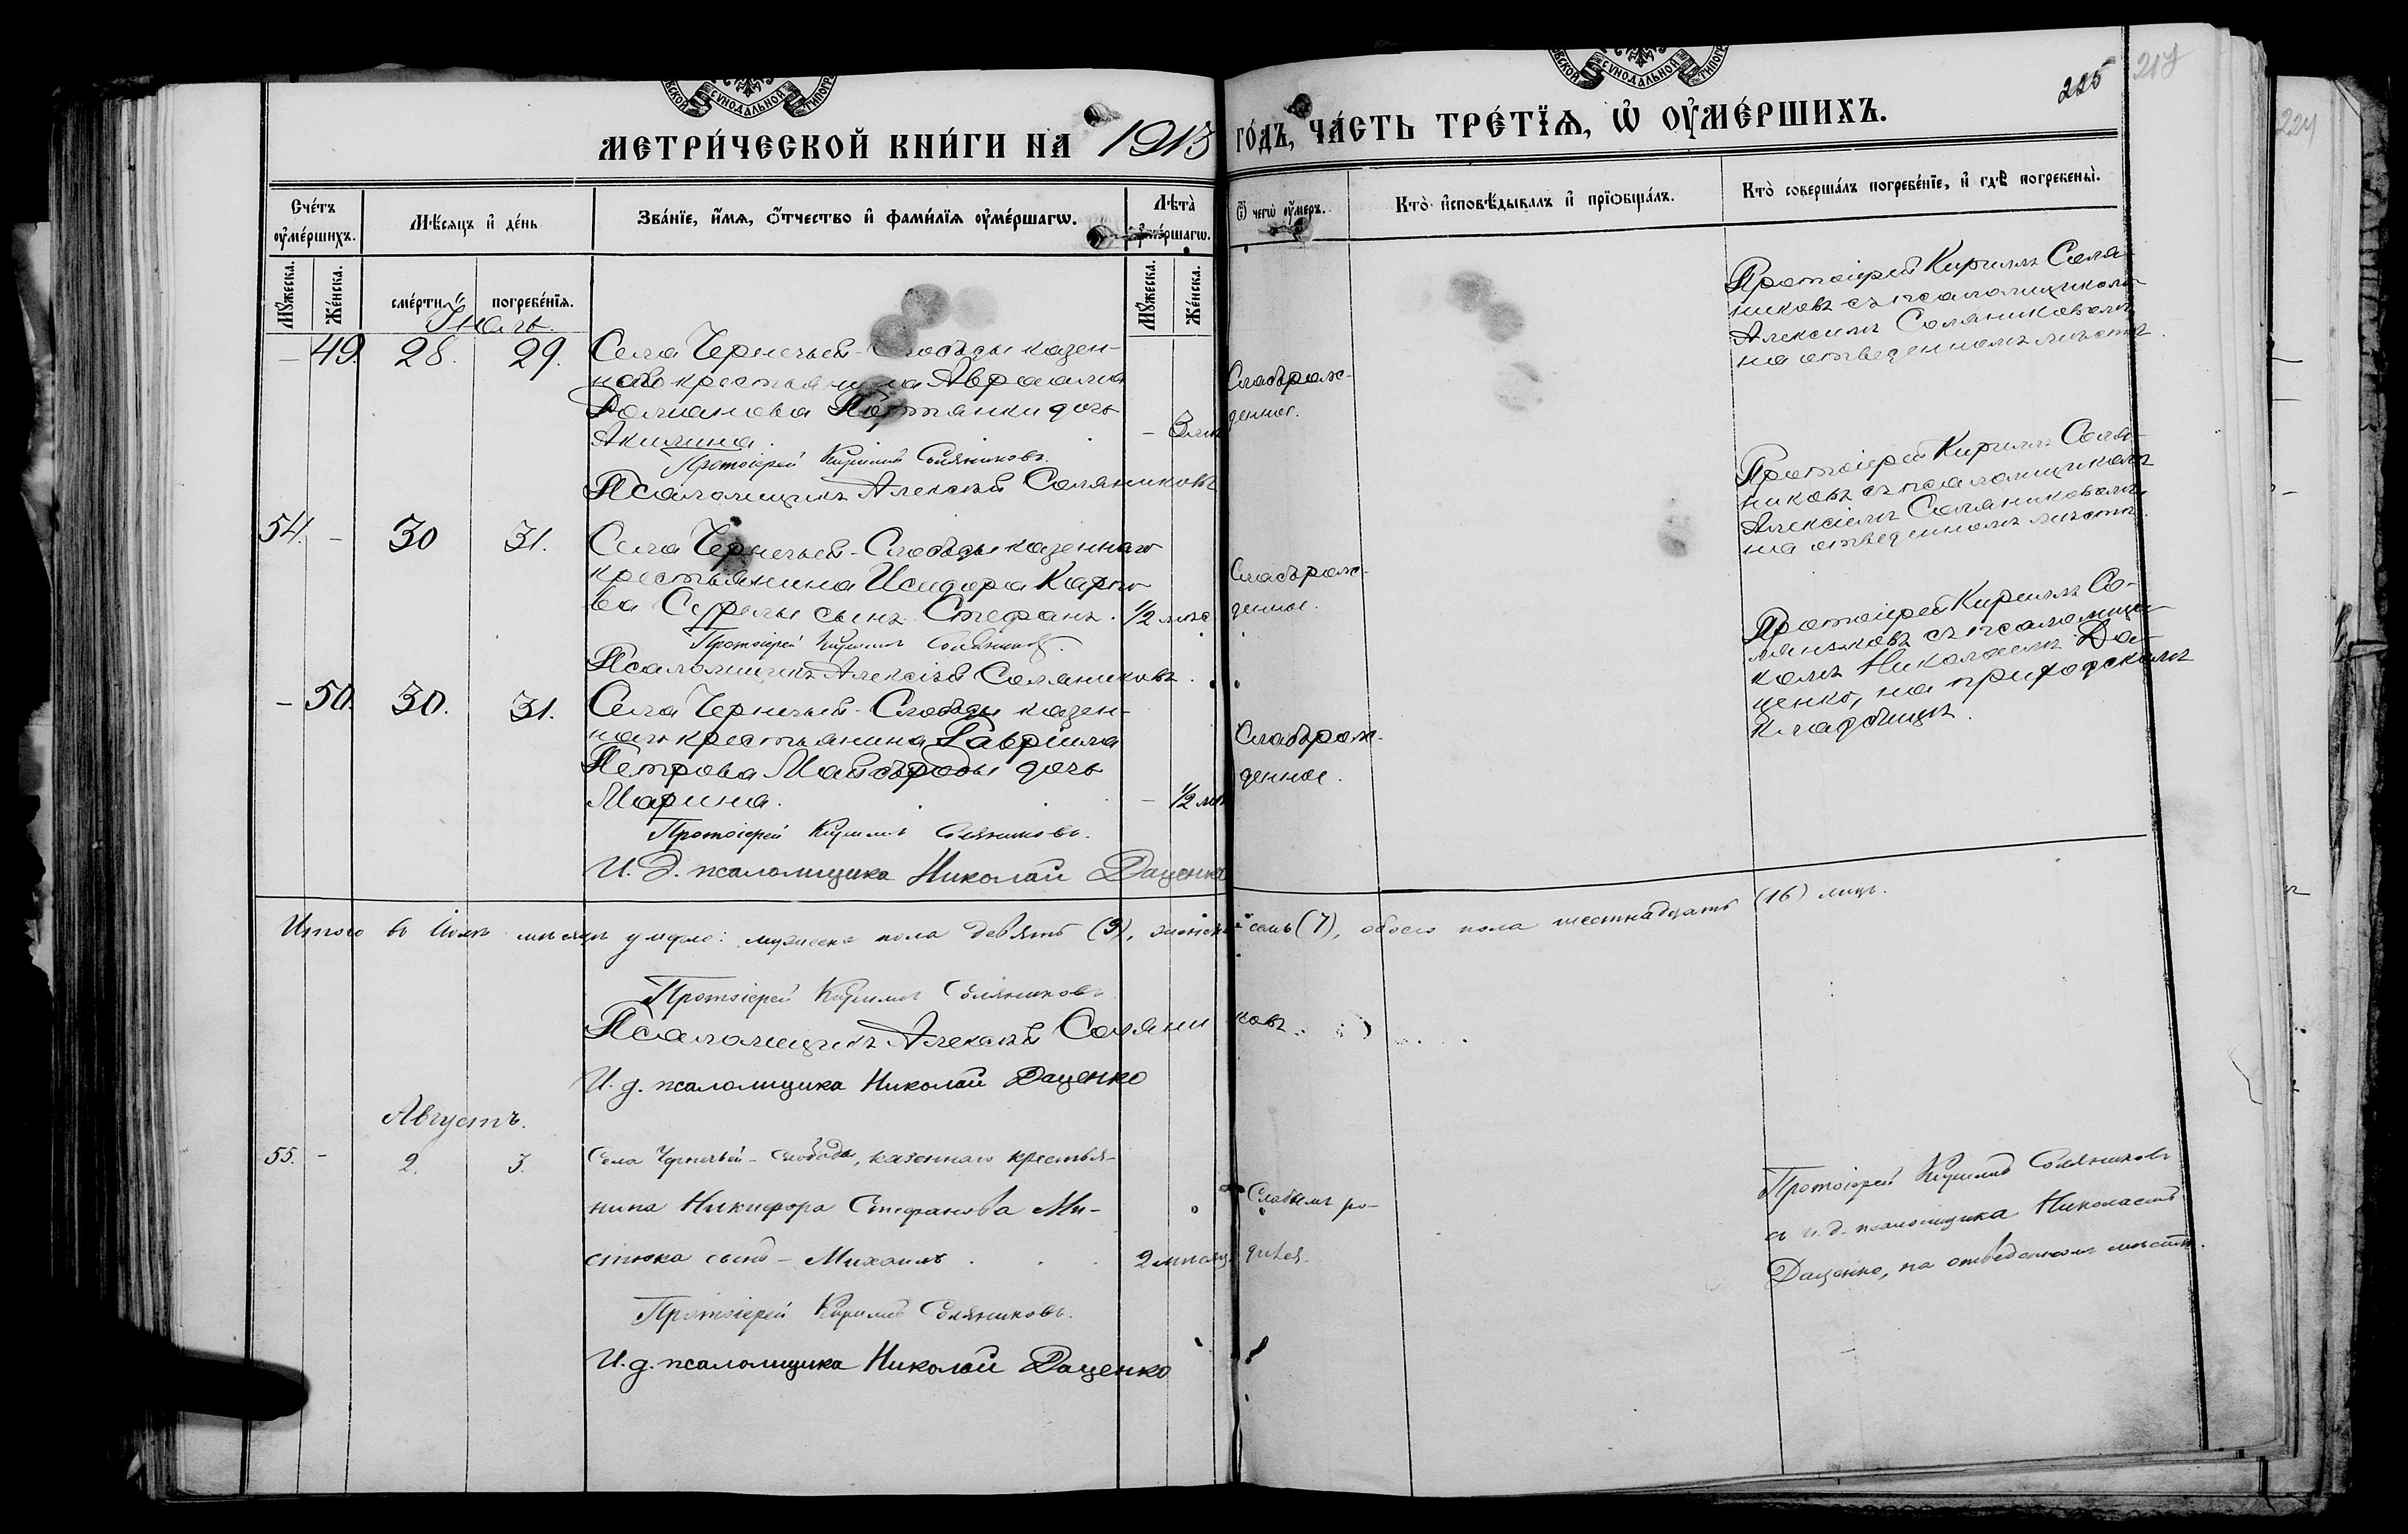 МЕТРИ́ЧЕСКОЙ КНИ́ГИ НА 1913 ГО́ДЪ, ЧА́СТЬ ТРЕ́ТЇѦ, Ѡ ОУ҆МЕ́РШИХЪ.
225
Сче́тъ оу҆ме́ршихъ.
Мѣ́сяцъ и҆ де́нь
Зва́нїе, и҆́мя, ѻ҆́тчество и҆ фами́лїя оу҆ме́ршагѡ.
Лѣта̀ оу҆ме́ршагѡ.
Ѿ чегѡ̀ оу҆́меръ.
Кто̀ и҆сповѣ́дывалъ и҆ прїѻбща́лъ.
Кто̀ соверша́лъ погребе́нїе, и҆ гдѣ̀ погребены̀.
Мꙋ́жеска.
Же́нска.
сме́рти.
погребе́нїя.
Мꙋ́жеска.
Же́нска.
Іюль.
– 49. 28. 29. Села Чернечьей-Слободы казен-
наго крестьянина Авраама
Романова дочь
Акилина. – 3 мѣ
Протоіерей Кириллъ Соляниковъ.
Псаломщикъ Алексѣй Соляниковъ
Слаборож-
денное.
Протоіерей Кириллъ Соля-
никовъ съ псаломщикомъ
Алексѣемъ Соляниковымъ
на отведенномъ мѣстѣ.
54. – 30 31. Села Чернечьей-Слободы казеннаго
крестьянина Исидора Карпо-
ва сынъ Стефанъ. 1/2 мѣс
Протоіерей Кириллъ Соляниковъ.
Псаломщикъ Алексѣй Соляниковъ.
Слаборож-
денное.
Протоіерей Кириллъ Соля-
никовъ съ псаломщикомъ
Алексѣемъ Соляниковымъ
на отведенномъ мѣстѣ.
– 50. 30. 31. Села Чернечьей-Слободы казен-
наго крестьянина Гавріила
Петрова Майбороды дочь
Марина. – 1/2 мѣ
Протоіерей Кириллъ Соляниковъ.
И. д. псаломщика Николай Даценко
Слаборож-
денное.
Протоіерей Кириллъ Со-
ляниковъ съ псаломщи-
комъ Николаемъ Да-
ценко, на приходскомъ
кладбищѣ.
Итого въ Іюлѣ мѣсяцѣ умерло: мужеска пола девять (9), женска семь (7), обоего пола шестнадцать (16) лицъ.
Протоіерей Кириллъ Соляниковъ
Псаломщикъ Алексѣй Соляниковъ.
И. д. псаломщика Николай Даценко
Августъ.
55. – 2. 3. Села Чернечьей-Слободы, казеннаго крестья-
нина Никифора Стефанова Ми-
стюка сынъ – Михаилъ. 2 мѣсяц.
Протоіерей Кириллъ Соляниковъ.
И. д. псаломщика Николай Даценко
Слабымъ ро-
дился.
Протоіерей Кириллъ Соляниковъ
съ и. д. псаломщика Николаемъ
Даценко, на отведенномъ мѣстѣ.